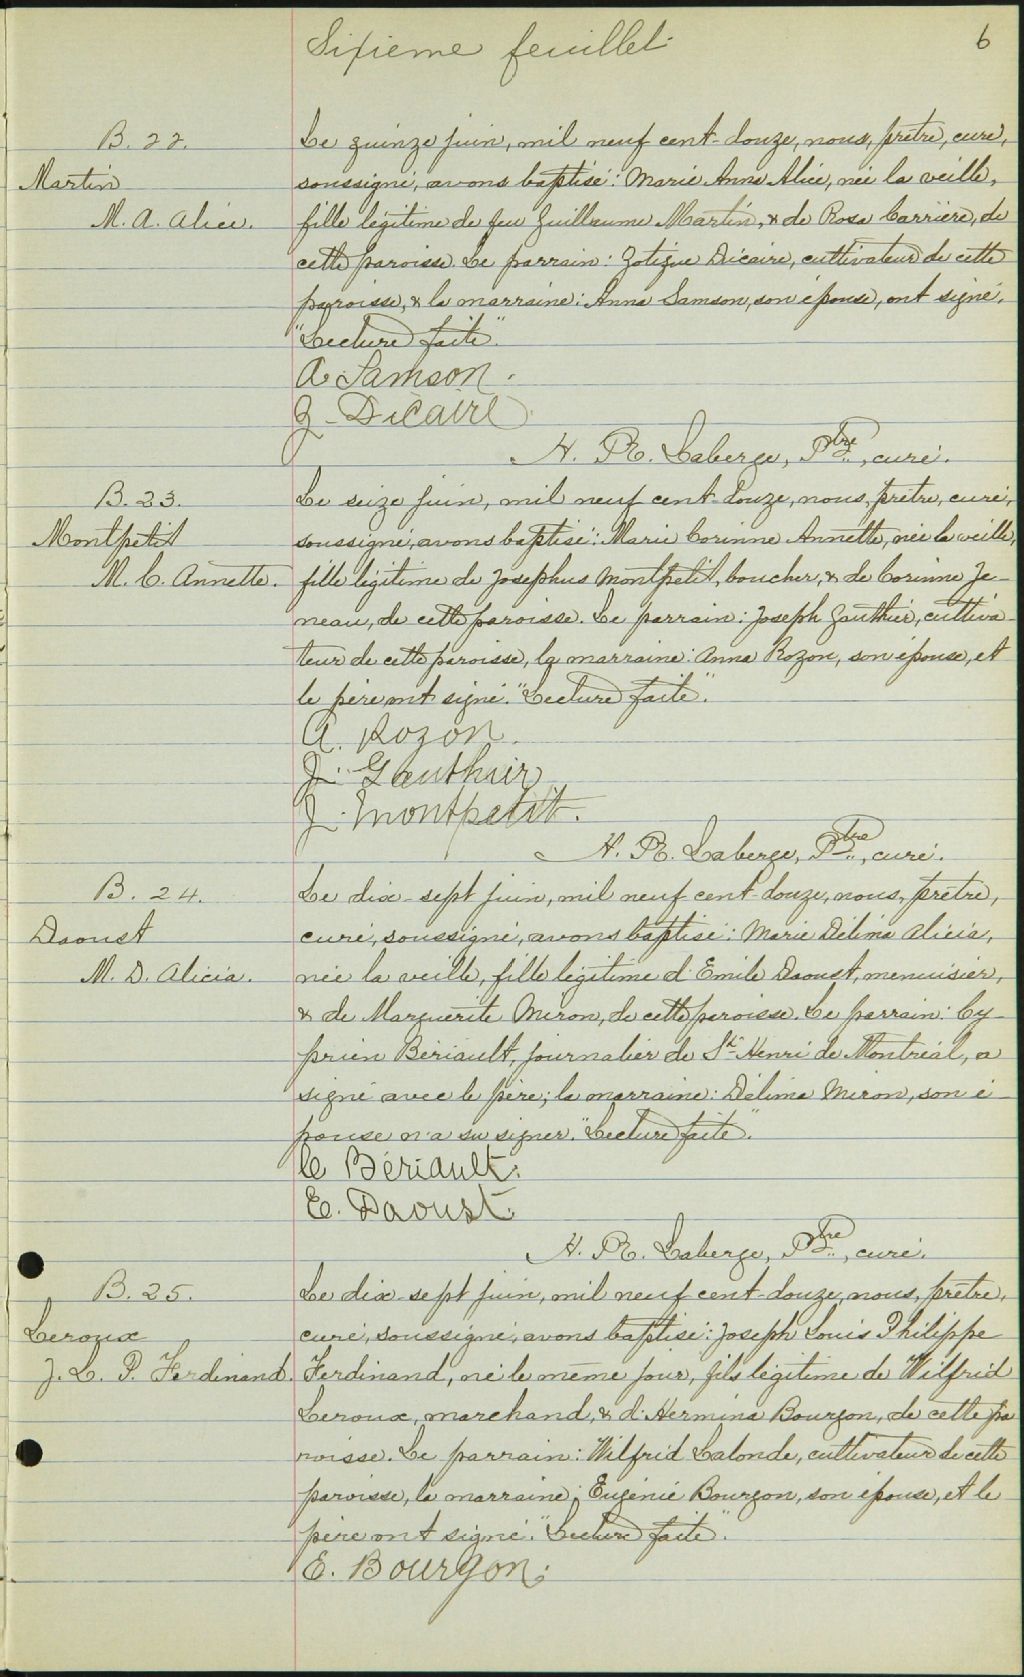 Sixieme feuillet
6
B. 22.
Le quinze juin, mil neuf cent-douze, nous, prêtre, curé,
Martin
soussigné, avons baptisé: Marie Anna Alice, née la veille,
M. A. Alice.
fille légitime de feu Guillaume Martin, & de Rosa Carrière, de
cette paroisse. Le parrain: Zotique Dicaire, cultivateur de cette
paroisse, & la marraine: Anna Samson, son épouse, ont signé.
"Lecture faite".
A. Samson.
Z. Dicaire
H. Pr. Laberge, Ptre, curé.
B. 23.
Le seize juin, mil neuf cent-douze, nous, prêtre, curé,
Montpetit
soussigné, avons baptisé: Marie Corinne Annette, née la veille,
M. C. Annette.
fille légitime de Josephus Montpetit, boucher, & de Corinne Je-
neau, de cette paroisse. Le parrain: Joseph Gauthier, cultiva-
teur de cette paroisse, la marraine: Anna Rozon, son épouse, et
le père ont signé. "Lecture faite".
A. Rozon.
J. Gauthier
J. Montpetit.
H. Pr. Laberge, Ptre, curé.
B. 24.
Le dix-sept juin, mil neuf cent-douze, nous, prêtre,
Daoust
curé, soussigné, avons baptisé: Marie Délima Alicia,
M. D. Alicia.
née la veille, fille légitime d'Emile Daoust, menuisier,
& de Marguerite Miron, de cette paroisse. Le parrain: Cy-
prien Bériault, journalier de St-Henri de Montréal, a
signé avec le père; la marraine: Délima Miron, son é-
pouse n'a su signer. "Lecture faite".
C Bériault.
E. Daoust.
H. Pr. Laberge, Ptre, curé.
B. 25.
Le dix-sept juin, mil neuf cent-douze, nous, prêtre,
Leroux
curé, soussigné, avons baptisé: Joseph Louis Philippe
J. L. P. Ferdinand.
Ferdinand, né le même jour, fils légitime de Wilfrid
Leroux, marchand, & d'Hermina Bourgon, de cette pa
roisse. Le parrain: Wilfrid Lalonde, cultivateur de cette
paroisse, la marraine: Eugénie Bourgon, son épouse, et le
père ont signé. "Lecture faite".
E. Bourgon.